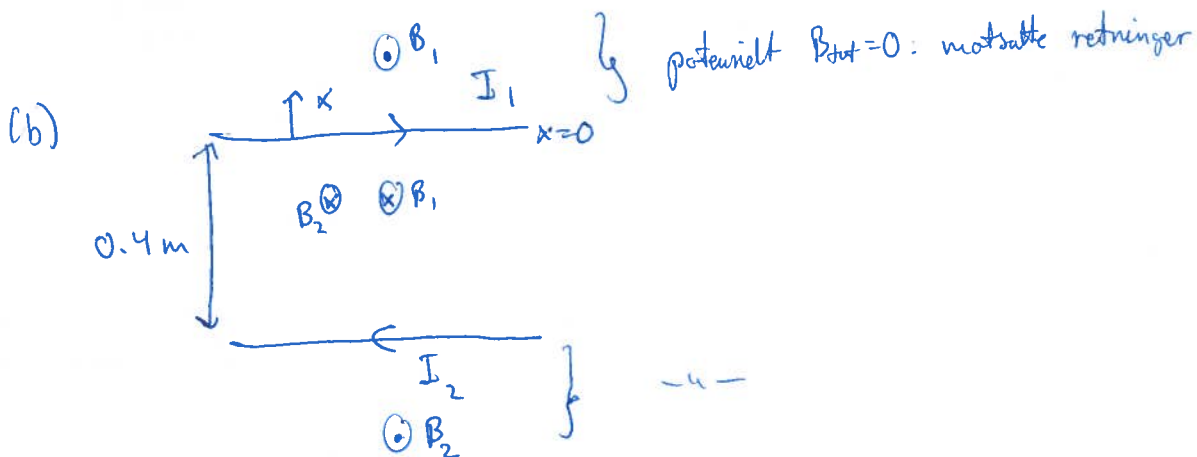 B₁
potensielt B_tot=0: motsatte retninger
I₁
x
(b)
x=0
B₂ B₁
0.4 m
I₂
-"-
B₂